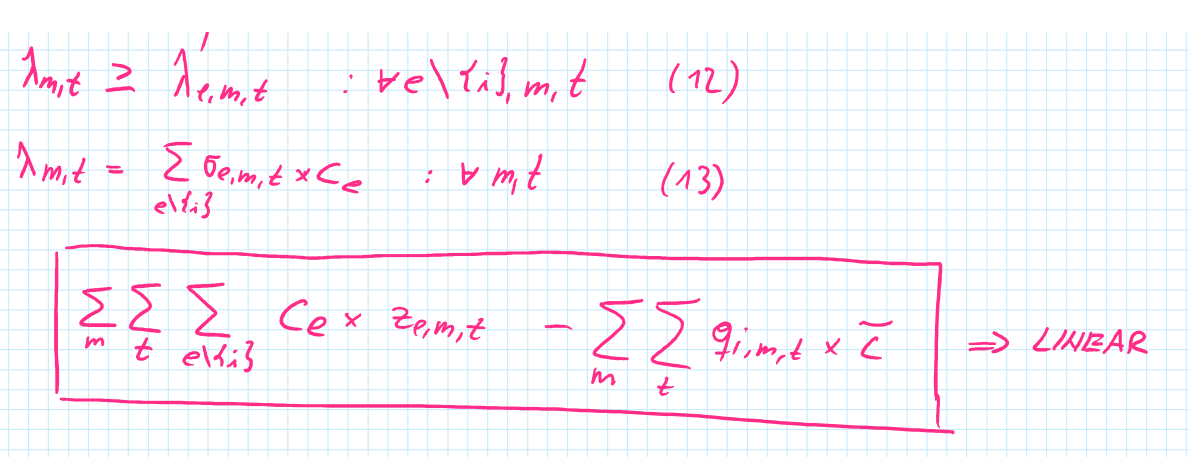 λ_{m,t} ≥ λ'_{e,m,t} : ∀e\{i}, m, t (12)
λ_{m,t} = ∑_{e\{i}} σ_{e,m,t} × C_e : ∀ m,t (13)
∑_m ∑_t ∑_{e\{i}} C_e × z_{e,m,t} − ∑_m ∑_t q_{i,m,t} × c̃ ⇒ LINEAR